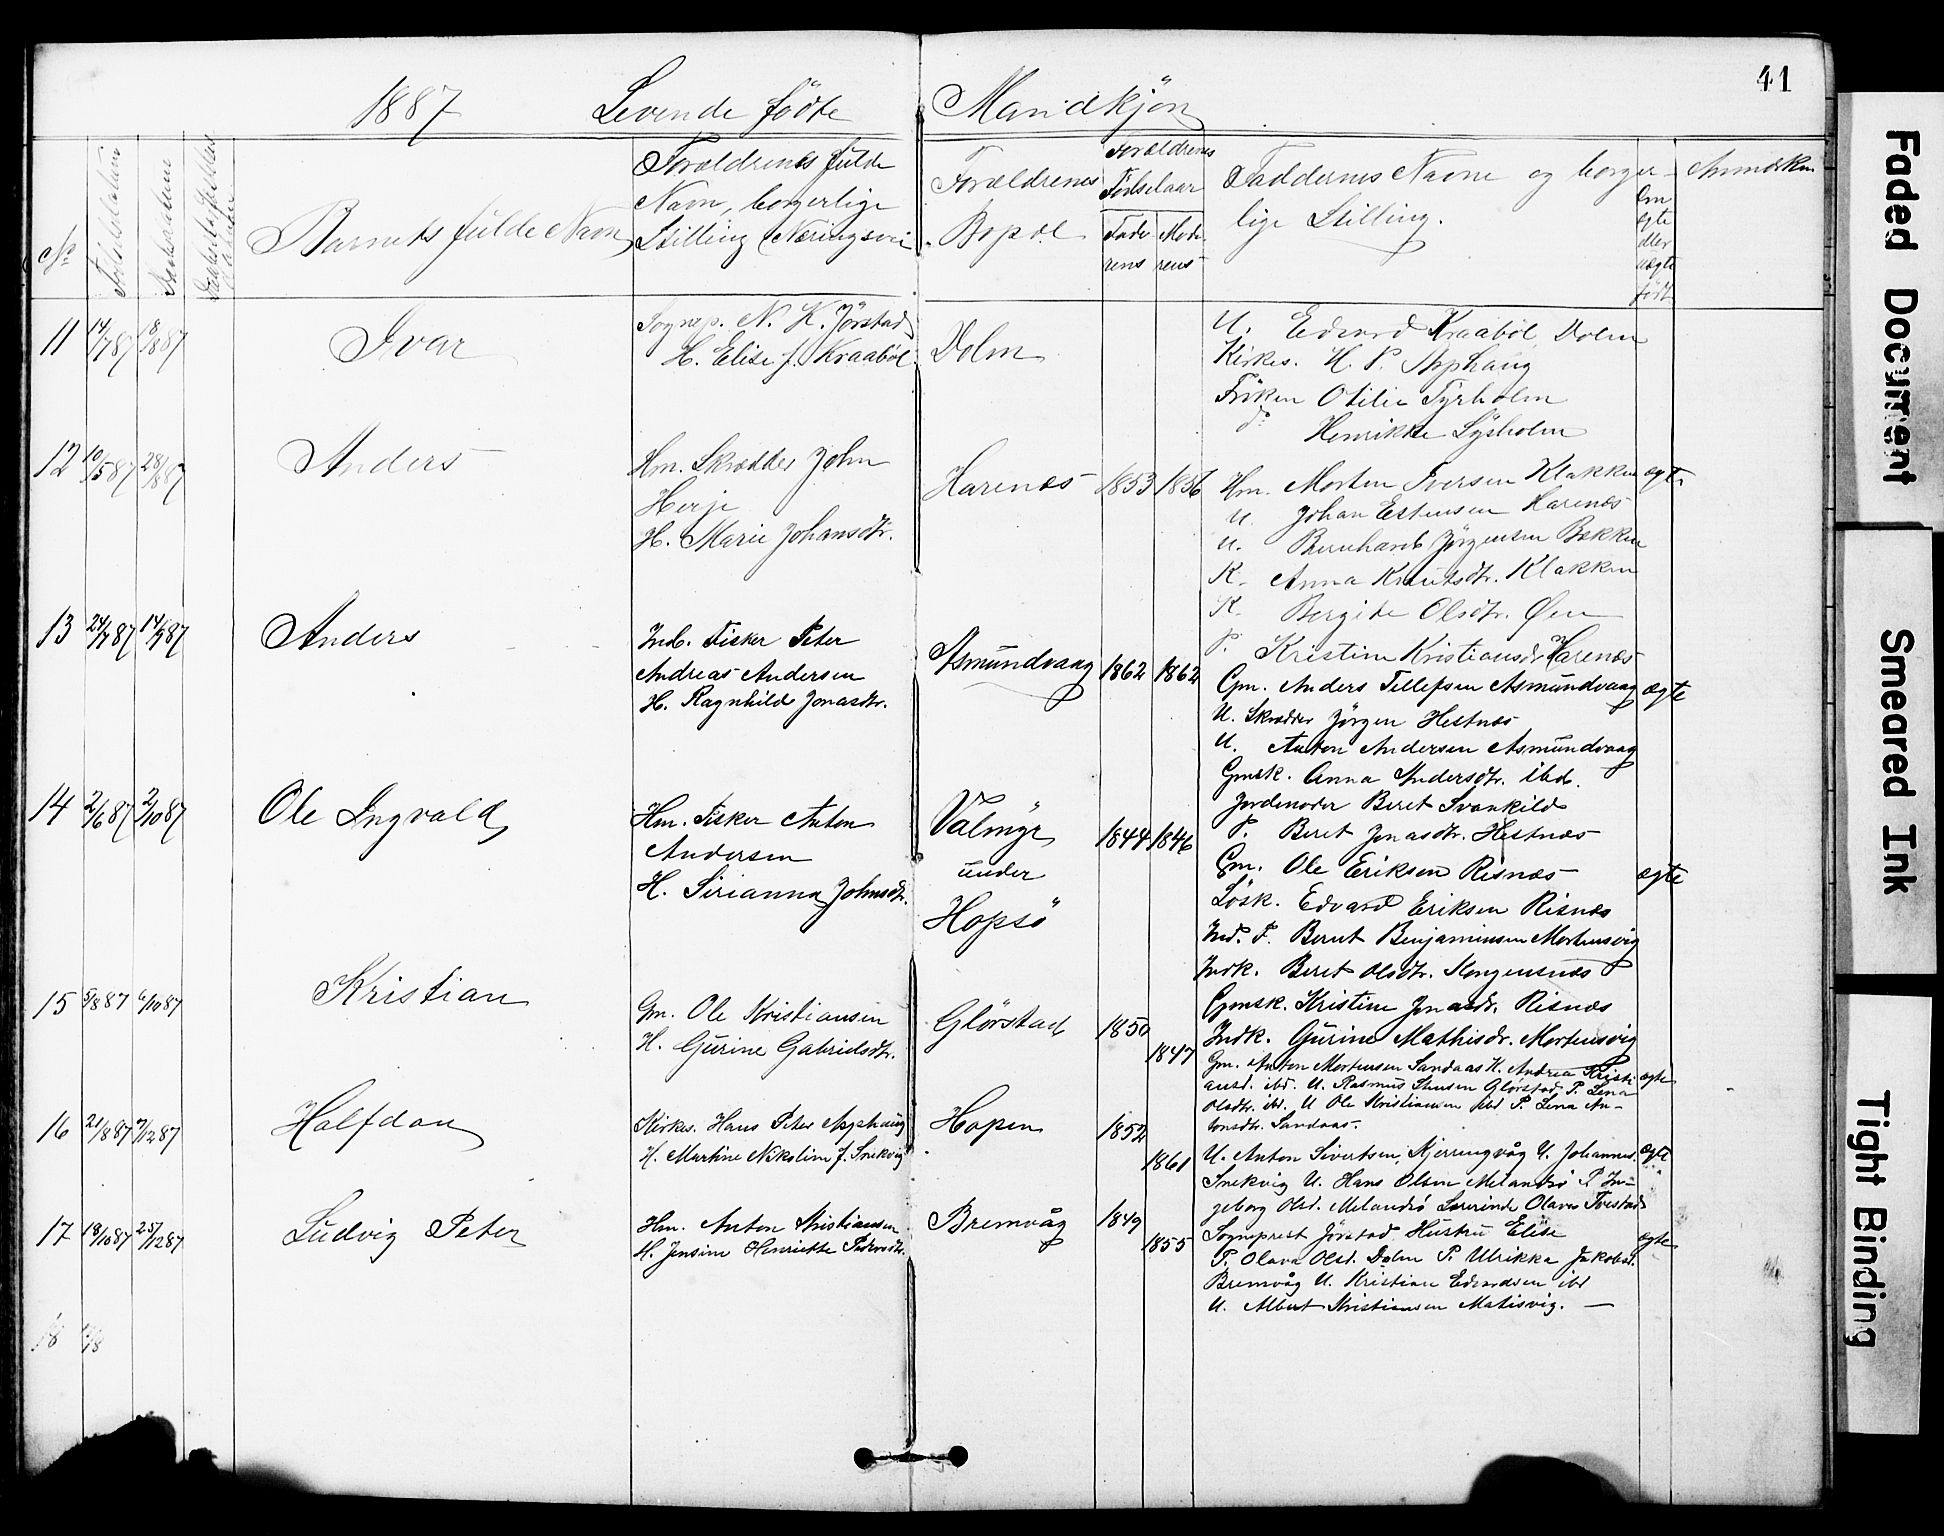 41
1887 Levende fødte Mandkjøn
No
Fødselsdatum
Daabsdatum
Barnets fulde Navn
Forældrenes fulde
Navn, borgerlige
Stilling (Næringsvei
Forældrenes
Bopæl
Forældrenes
Fødselsaar
Fade-
rens
Mode-
rens
Faddernes Navne og borger-
lige Stilling.
Om
ægte
eller
uægte
født
Anmærkn
11 14/7 87 18/8 87 Ivar
Sognep. N. K. Jörstad
H. Elise f. Kraaböl
Dolm
U. Edvard Kraaböl, Dolm
Kirkes. H. P. Apphaug
Fröken Otilie Tyrholm
do Henrikke Lysholm
12 10/5 87 28/8 87 Anders
Hm. Skrædder John
Herje
H. Marie Johansdtr.
Harenæs 1853 1856
Hm. Morten Iversen Klakken ægte
U. Johan Estensen Harenæs
U. Bernhard Jørgensen Bekken
K. Anna Knutsdtr. Klakken
K. Bergite Olsdtr. Øen
P. Kristine Kristiansdr Harenæs
13 24/7 87 14/9 87 Anders
Ind. Fisker Peter
Andreas Andersen
H. Ragnhild Jonasdtr.
Asmundvaag 1862 1862
Gm. Anders Tellefsen Asmundvaag ægte
U. Skrædder Jörgen Hestnæs
U. Anton Andersen Asmundvaag
Gmsk. Anna Andersdtr. ibd.
Jordemoder Beret Svankild
P. Beret Jonasdtr. Hestnæs
14 2/6 87 2/10 87 Ole Ingvald
Hm. Fisker Anton
Andersen
H. Sirianna Johnsdtr.
Valmyr
under
Hopsö
1844 1846
Gm. Ole Eriksen Risnæs ægte
Løsk. Edvard Eriksen Risnæs
Ind. F. Bernt Benjaminsen Mortensvig
Indk. Beret Olsdtr. Kongensnæs
Gmsk. Kristine Jonasdr. Risnæs
Indk. Gurine Mathisdr. Mortensvig
15 5/8 87 6/10 87 Kristian
Gm. Ole Kristiansen
H. Gurine Gabrielsdtr.
Glörstad 1850
1847
Gm. Anton Mortensen Sandaas K. Andrea Kristi-
ansd. ibd. U. Rasmus Stensen Glörstad P. Lena ægte
Olsdtr. ibd. U Ole Kristiansen ibd P. Lena An-
tonsdtr. Sandaas.
16 21/8 87 4/12 87 Halfdan
Kirkes. Hans Peter Apphaug
H. Martine Nikoline f. Snekvig
Hopen 1852
1861
U. Anton Sivertsen, Kjerringvåg U. Johannes ægte
Snekvig U. Hans Olsen Melandsö P. In-
geborg Olsd. Melandsö Lærerinde Olava Tvestad
17 18/10 87 25/12 87 Ludvig Peter
Hm. Anton Kristiansen
H. Jensine Henriette Pedersdtr.
Bremvåg 1849
1855
Sogneprest Jörstad Hustru Elise ægte
P. Olava Olsd. Dolm P. Ulrikka Jakobsd.
Bremvåg U. Kristian Edvardsen ibd
U. Albert Kristiansen Matisvig. —
18
Faded Document
Smeared Ink
Tight Binding